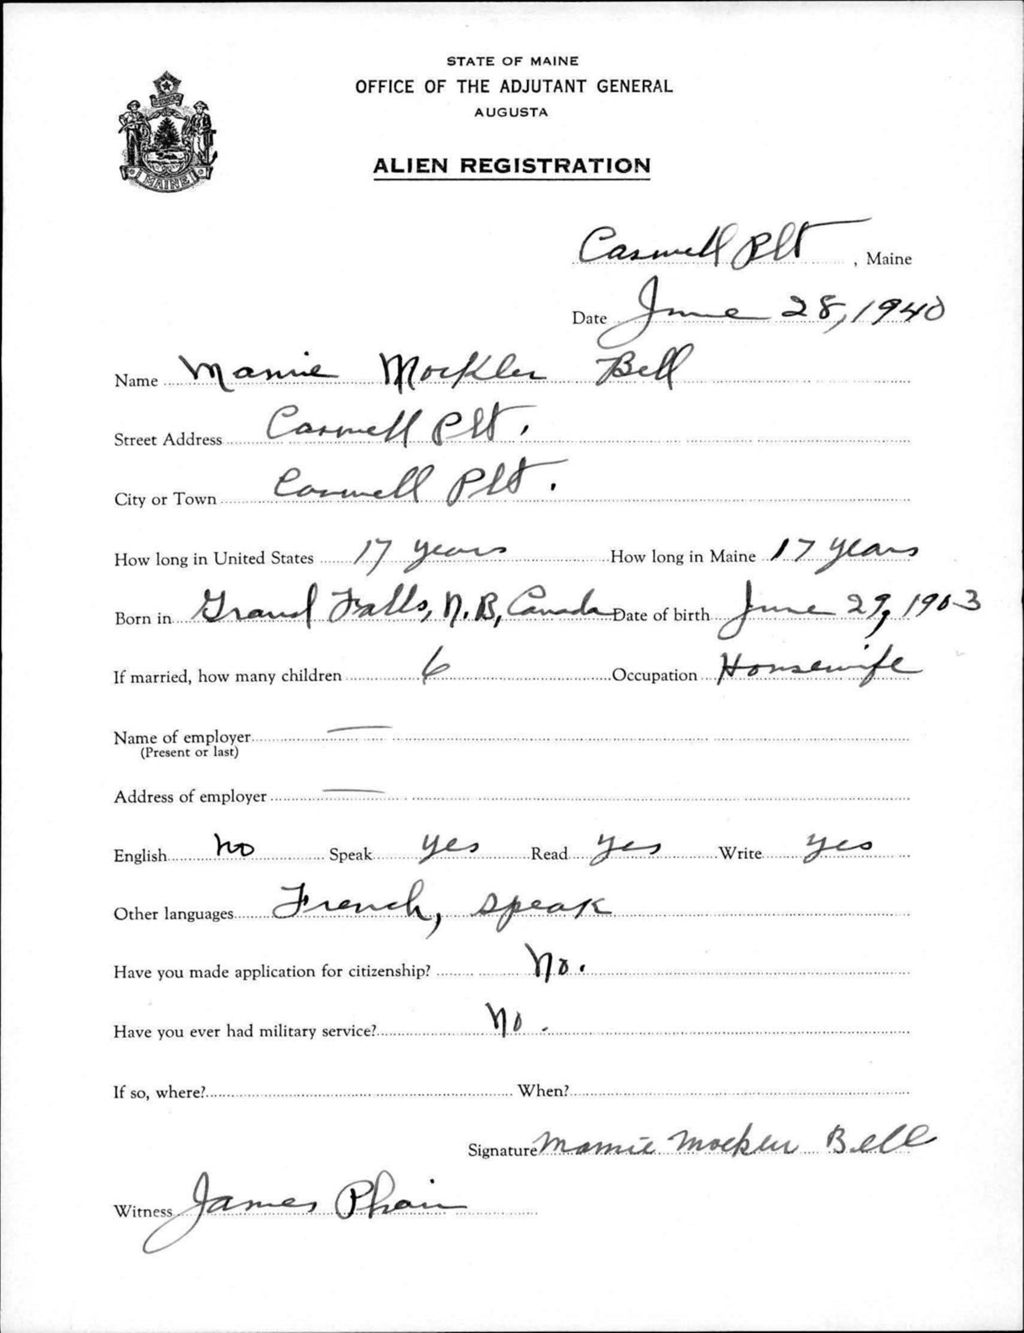 STATE OF MAINE
OFFICE OF THE ADJUTANT GENERAL
AUGUSTA
ALIEN REGISTRATION
MAINE
Caswell Plt, Maine
Date June 28, 1940
Name Mamie Mockler Bell
Street Address Caswell Plt.
City or Town Caswell Plt.
How long in United States 17 years How long in Maine 17 years
Born in Grand Falls, N.B, Canada Date of birth June 29, 1903
If married, how many children 6 Occupation Housewife
Name of employer —
(Present or last)
Address of employer —
English no Speak yes Read yes Write yes
Other languages French, speak
Have you made application for citizenship? No.
Have you ever had military service? No.
If so, where? When?
Signature Mamie Mockler Bell
Witness James Phair